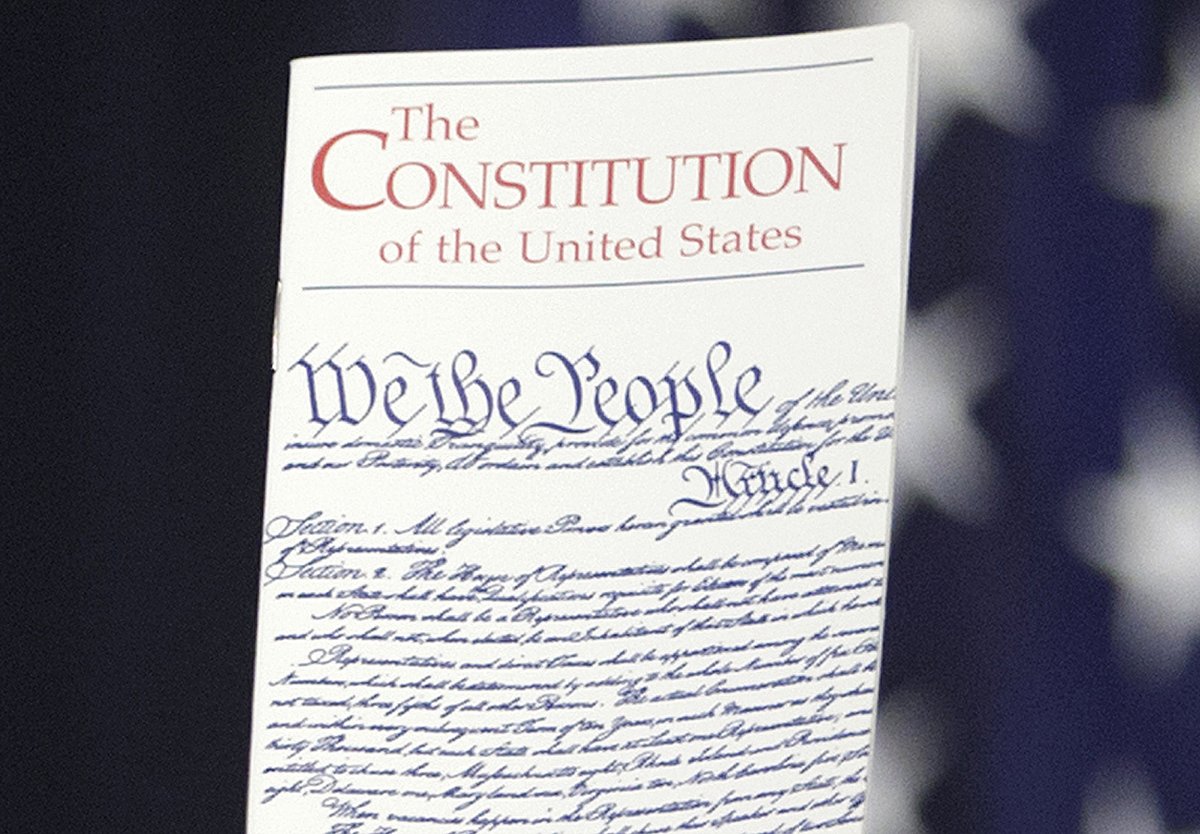 The
CONSTITUTION
of the United States
We the People of the Unit
insure domestic Tranquility, provide for the common defence, promo
and our Posterity, do ordain and establish this Constitution for the U
Article. I.
Section. 1. All legislative Powers herein granted shall be vested in
of Representatives.
Section. 2. The House of Representatives shall be composed of Mem
in each State shall have Qualifications requisite for Electors of the most numero
No Person shall be a Representative who shall not have attained to
and who shall not, when elected, be an Inhabitant of that State in which he
Representatives and direct Taxes shall be apportioned among the several
Numbers, which shall be determined by adding to the whole Number of free
not taxed, three fifths of all other Persons. The actual Enumeration shall be
and within every subsequent Term of ten Years, in such Manner as they shall
thirty Thousand, but each State shall have at Least one Representative; and
entitled to chuse three, Massachusetts eight, Rhode Island and Providence
eight, Delaware one, Maryland six, Virginia ten, North Carolina five,
When vacancies happen in the Representation from any State, the
The House of shall chuse their Speaker and other